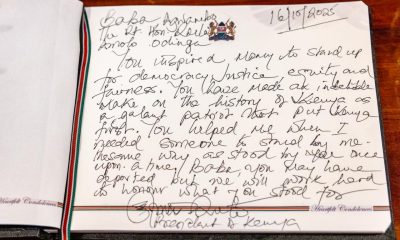 16/10/2025
Baba
The Rt Hon Raila
Amolo Odinga
You inspired many to stand up
for democracy, justice, equity and
fairness. You have made an indelible
mark on the history of Kenya as
a galant patriot that put Kenya
first. You helped me when I
needed someone to stand by me.
same way as stood by once
upon a time. Baba you may have
departed but we will work hard
to honour what you stood for
President Kenya
Heartfelt Condolences
Heartfelt Condolences